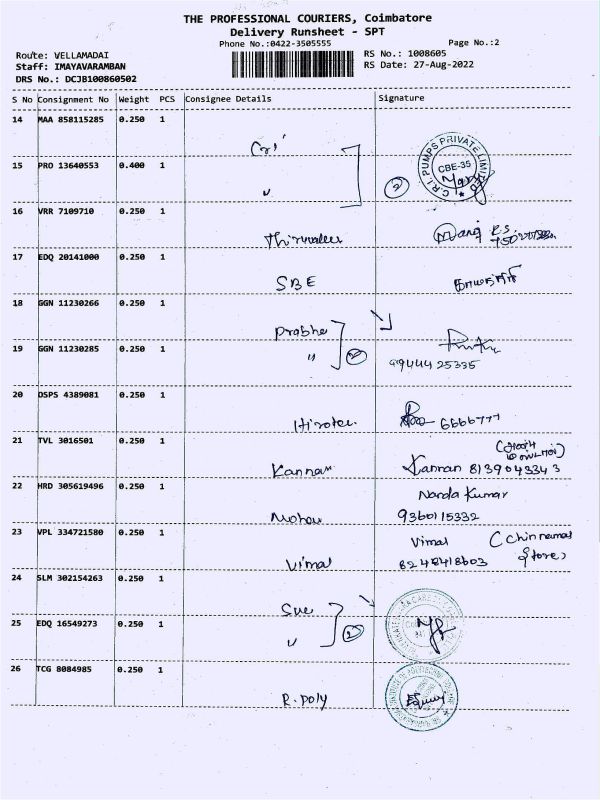 THE PROFESSIONAL COURIERS, Coimbatore
Delivery Runsheet - SPT
Phone No.:0422-3505555
Page No.:2
Route: VELLAMADAI
RS No.: 1008605
Staff: IMAYAVARAMBAN
RS Date: 27-Aug-2022
DRS No.: DCJB100860502
S No Consignment No Weight PCS Consignee Details Signature
14 MAA 858115285 0.250 1 Cri
C.R.I. PUMPS PRIVATE LIMITED
CBE-35
15 PRO 13640553 0.400 1 " 2
16 VRR 7109710 0.250 1
17 EDQ 20141000 0.250 1 SBE
18 GGN 11230266 0.250 1 Prabhe
19 GGN 11230285 0.250 1 " 2 9944425335
20 DSPS 4389081 0.250 1 6666777
21 TVL 3016501 0.250 1 Kannan Kannan 8139043343
22 HRD 305619496 0.250 1 Mohan Nanda Kumar
9360115332
23 VPL 334721580 0.250 1 Vimal Vimal (Chinnamal Stores)
8248418603
24 SLM 302154263 0.250 1 Sue
25 EDQ 16549273 0.250 1 " 2
26 TCG 8084985 0.250 1 R.Poly